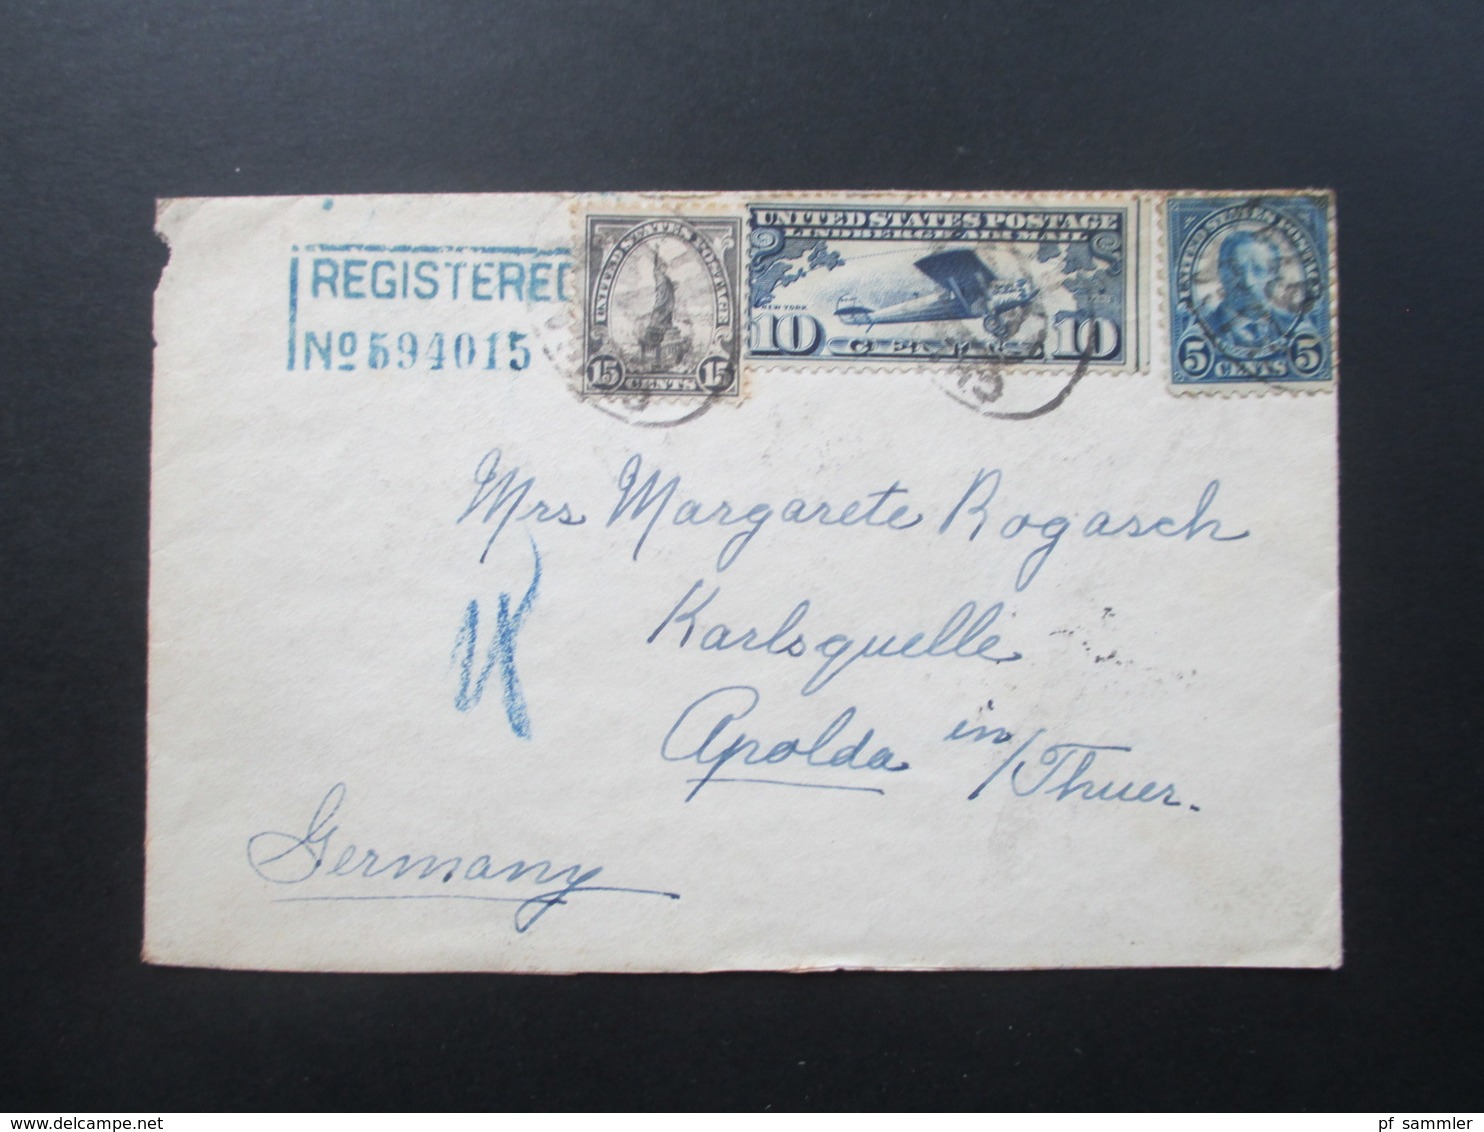 REGISTERED
No 594015
UNITED STATES POSTAGE
15 CENTS 15
UNITED STATES POSTAGE
LINDBERGH AIR MAIL
NEW YORK
10 CENTS 10
UNITED STATES POSTAGE
5 CENTS 5
Mrs Margarete Rogasch
Karlsquelle
Apolda in/Thuer.
Germany
pf_sammler